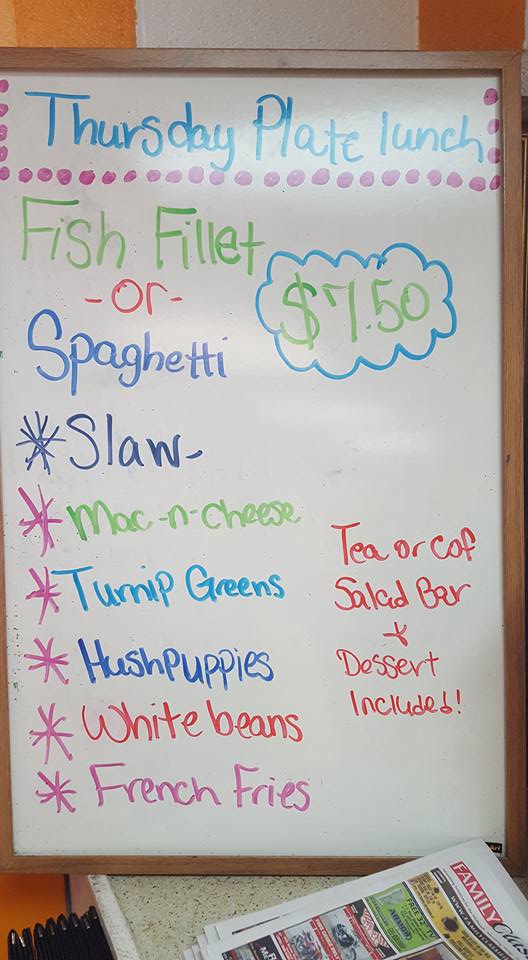 Thursday Plate lunch
Fish Fillet
-or-
$7.50
Spaghetti
Slaw-
Mac-n-cheese
Turnip Greens
Hushpuppies
White beans
French Fries
Tea or Cof
Salad Bar
+
Dessert
Included!
FAMILY
FREE